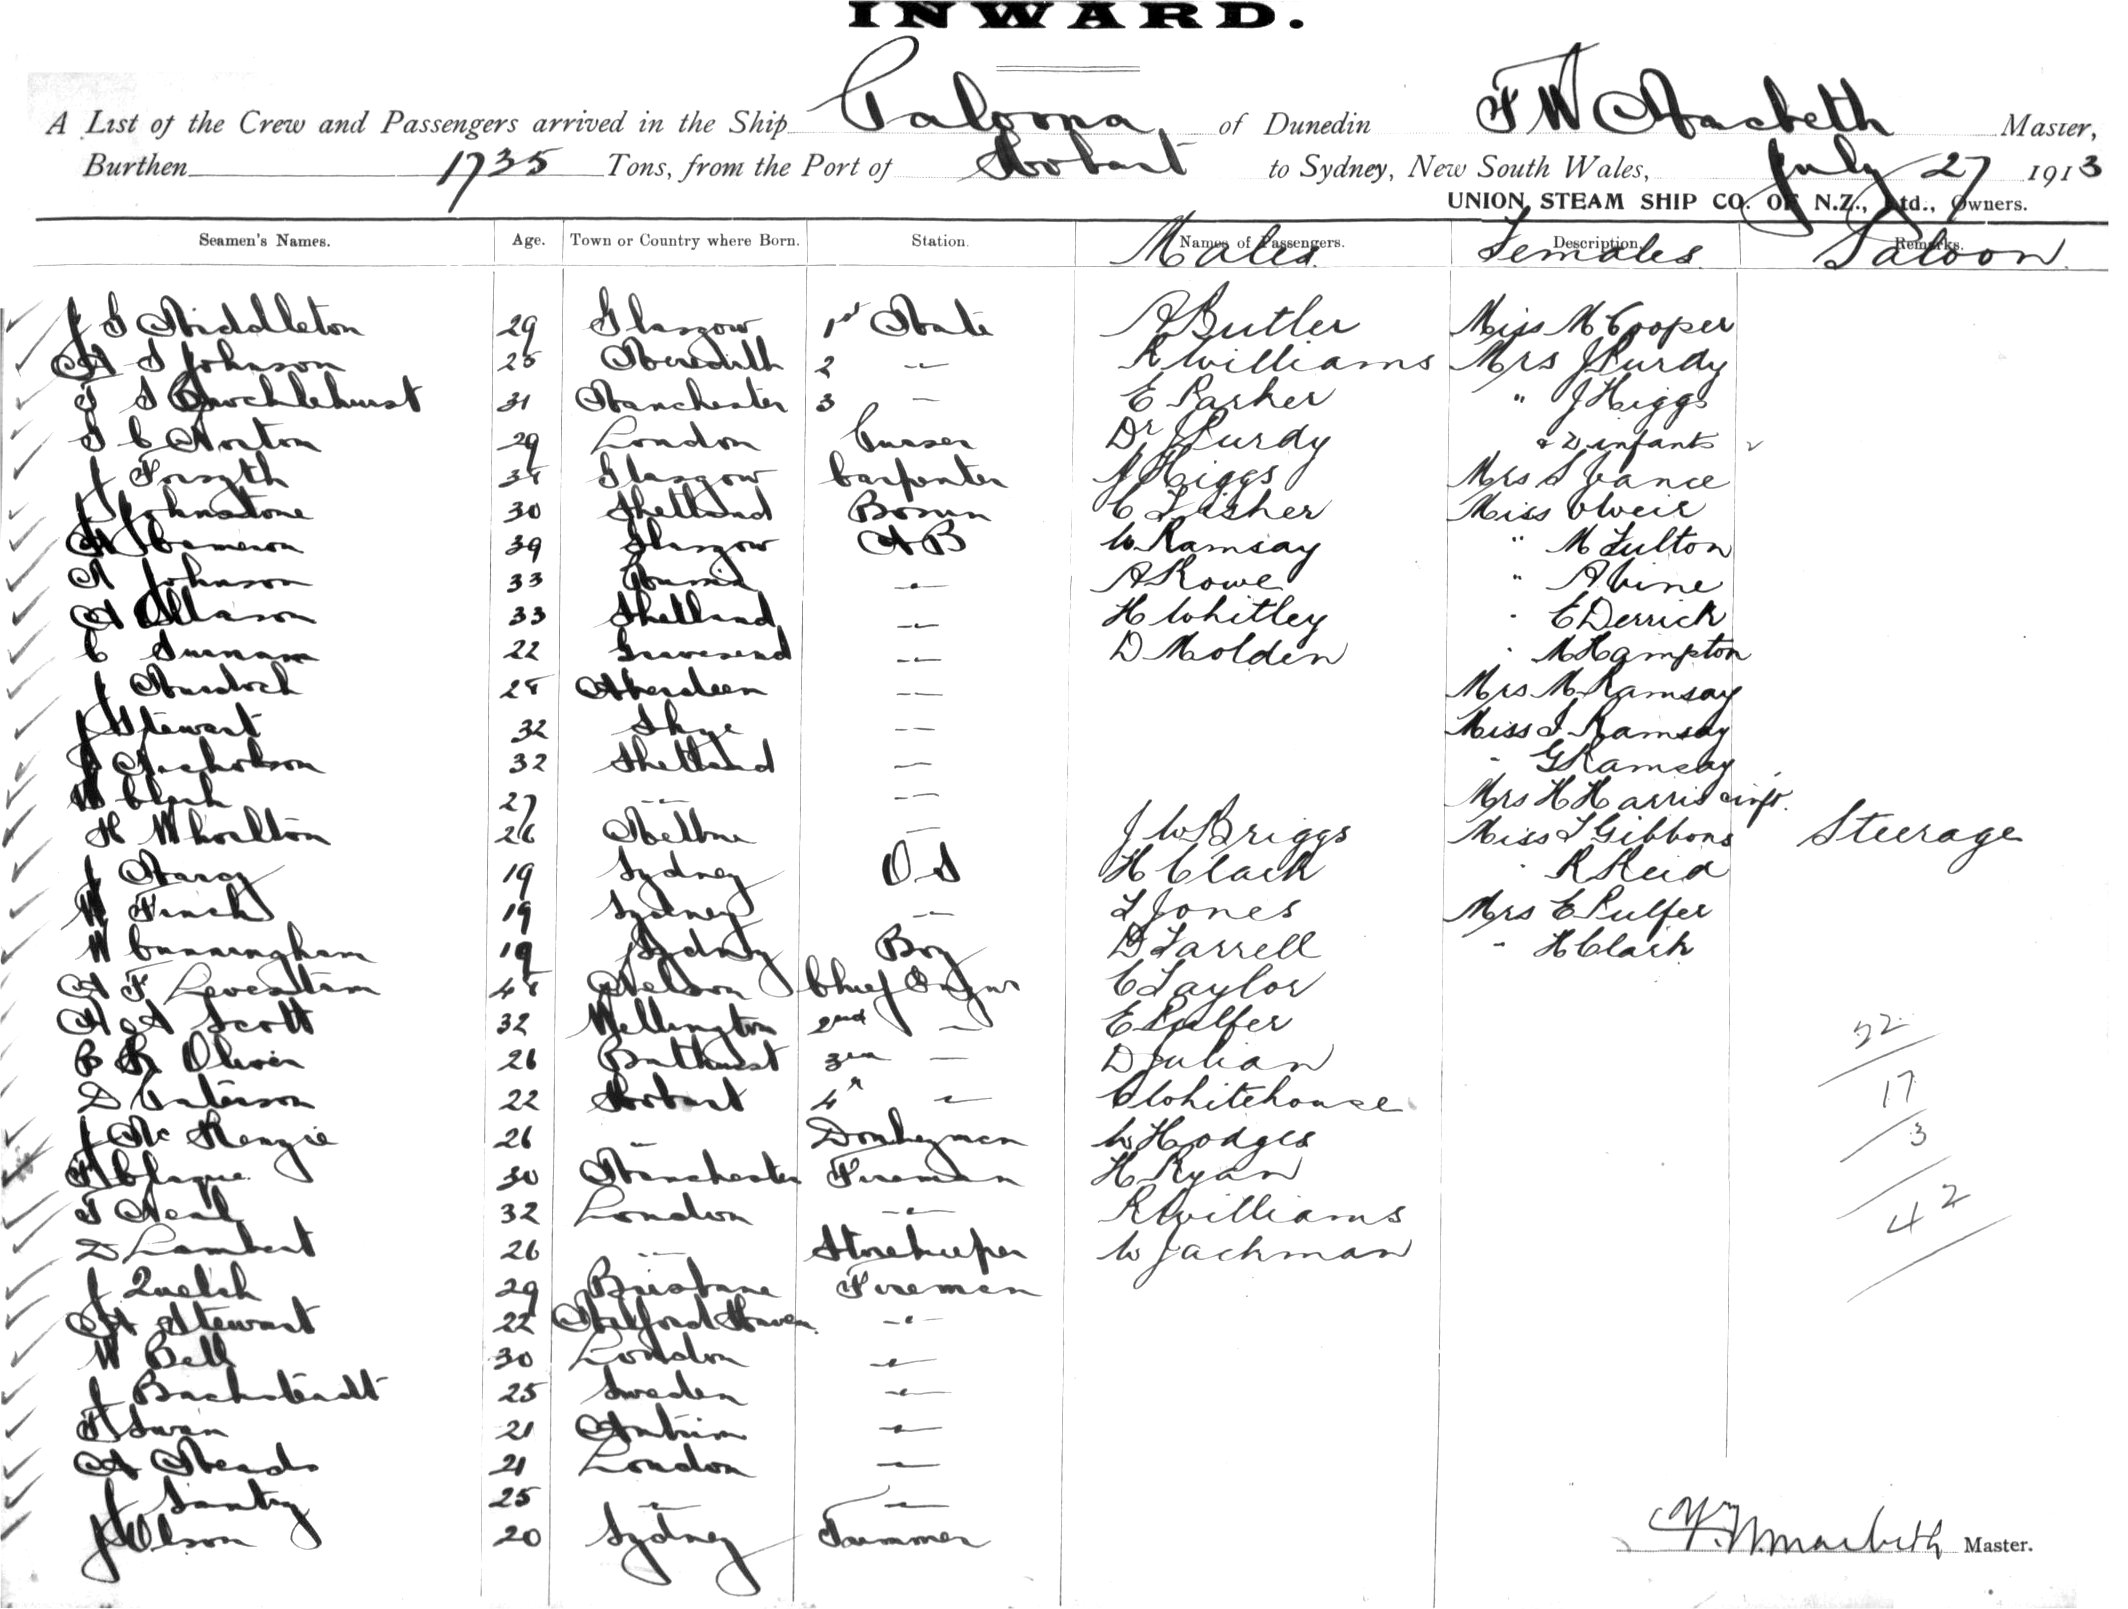 INWARD.
A List of the Crew and Passengers arrived in the Ship Paloona, of Dunedin F W Macbeth Master,
Burthen 1735 Tons, from the Port of Hobart to Sydney, New South Wales, July 27 1913
UNION STEAM SHIP CO. OF N.Z., Ltd., Owners.
Seamen's Names. Age. Town or Country where Born. Station. Names of Passengers. Description. Remarks.
Males Females Saloon
J G Middleton 29 Glasgow 1st Mate A Butler Miss M Cooper
A S Johnson 25 Meredith 2 -"- R Williams Mrs J Purdy
T S Brocklehurst 31 Manchester 3 - E Parker " J Higgs
G C Norton 29 London Purser Dr J Purdy & 2 infants
J Forsyth Glasgow Carpenter J Higgs Mrs S Vance
J Johnstone 30 Shetland Bosun C Fisher Miss Weir
A Cameron 39 Glasgow A B W Ramsay " M Fulton
A Johnson 33 Russia -"- A Rowe " A Vine
A Mason 33 Shetland -"- H Whitley " E Derrick
C 22 Gravesend -"- D Molden " M Hampton
J Murdoch Aberdeen -"- Mrs M Ramsay
J Stewart 32 Skye -"- Miss I Ramsay
J Nicholson 32 Shetland -"- " G Ramsay
W Clark 27 -"- -"- Mrs H Harris & inft.
H Whoilton 26 Melbne -"- J W Briggs Miss L Gibbons Steerage
J 19 Sydney O S H Clark " R Reid
W Finch 19 Sydney -"- L Jones Mrs E Pulfer
W Cunningham 19 Sydney Boy D Farrell " H Clark
A F Levestam Nelson Chief Engnr C Taylor
A A Scott 32 Wellington 2nd - E Pulfer
R Oliver 26 Bathurst 3rd - D Julian
D Paterson 22 Hobart 4th - C Whitehouse
J McKenzie 26 " Donkeyman W Hodges
F Clague 30 Manchester Fireman H Ryan
T Neal 32 London -"- R Williams
D Lambert 26 -"- Storekeeper W Jackman
J Quelch 29 Brisbane Fireman
A Stewart 22 Milford Haven -"-
W Bell 30 London -"-
J Backstendt 25 Sweden -"-
F Swan 21 Antrim -"-
A Meads 21 London -"-
J Santry 25 -"- -"-
J Olson 20 Sydney Trimmer
22
17
3
42
F. W. Macbeth Master.